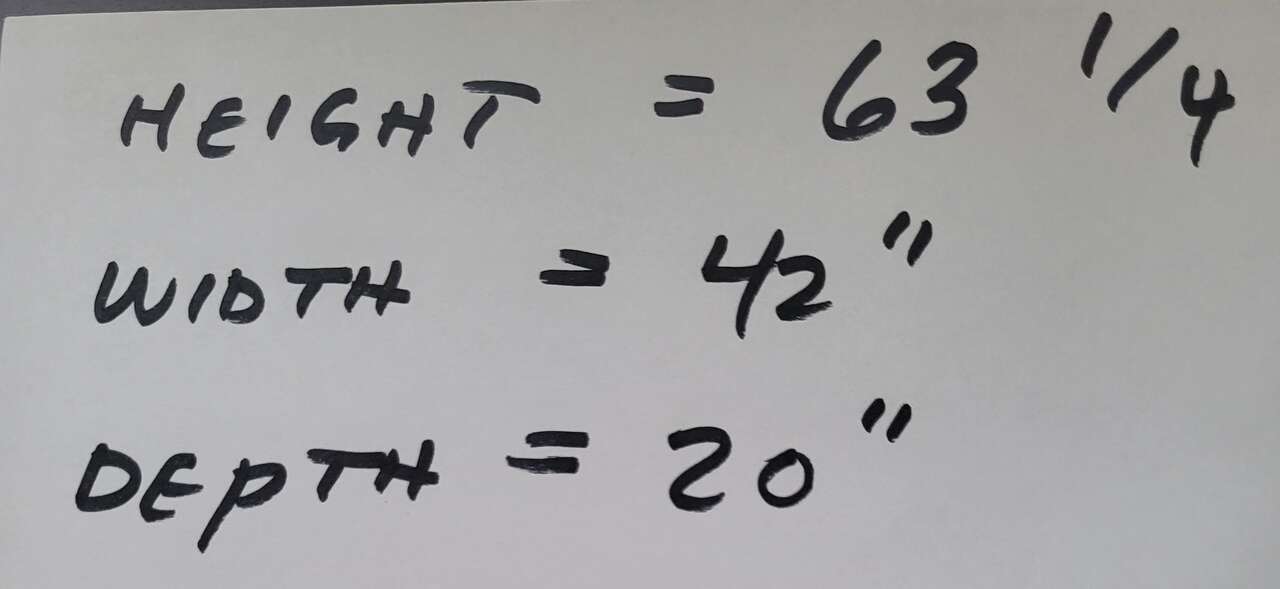 HEIGHT = 63 1/4
WIDTH = 42"
DEPTH = 20"